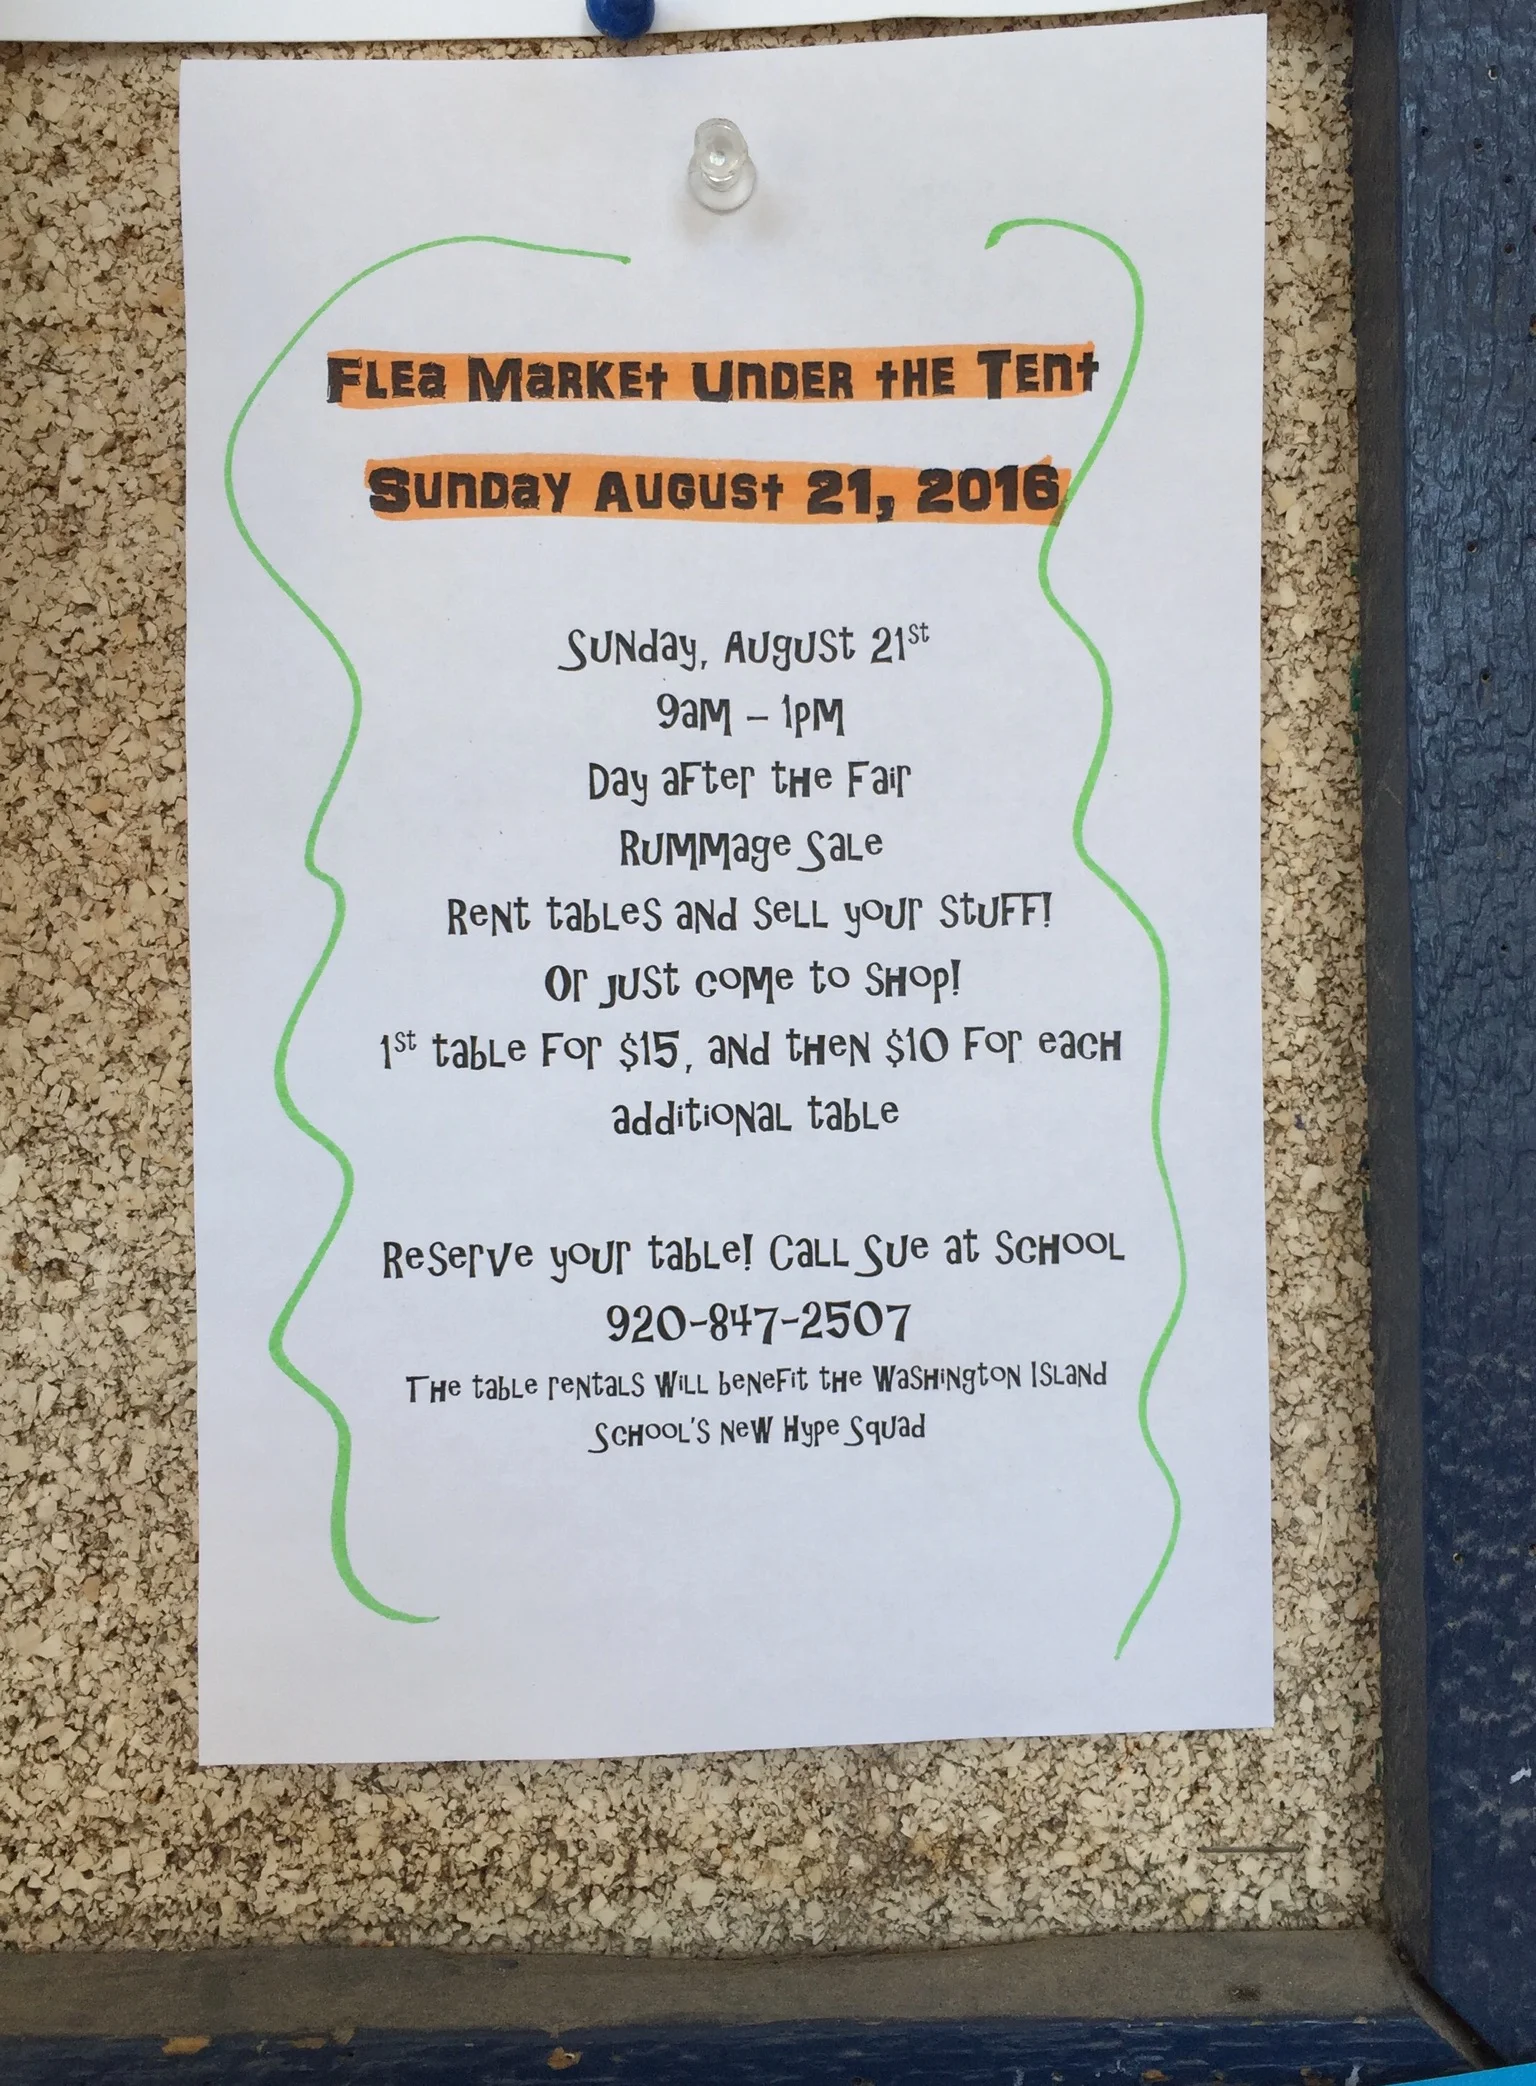 Flea Market Under the Tent
Sunday August 21, 2016
Sunday, August 21st
9am – 1pm
Day after the Fair
Rummage Sale
Rent tables and sell your stuff!
Or just come to shop!
1st table for $15, and then $10 for each
additional table
Reserve your table! Call Sue at School
920-847-2507
The table rentals will benefit the Washington Island
School's new Hype Squad